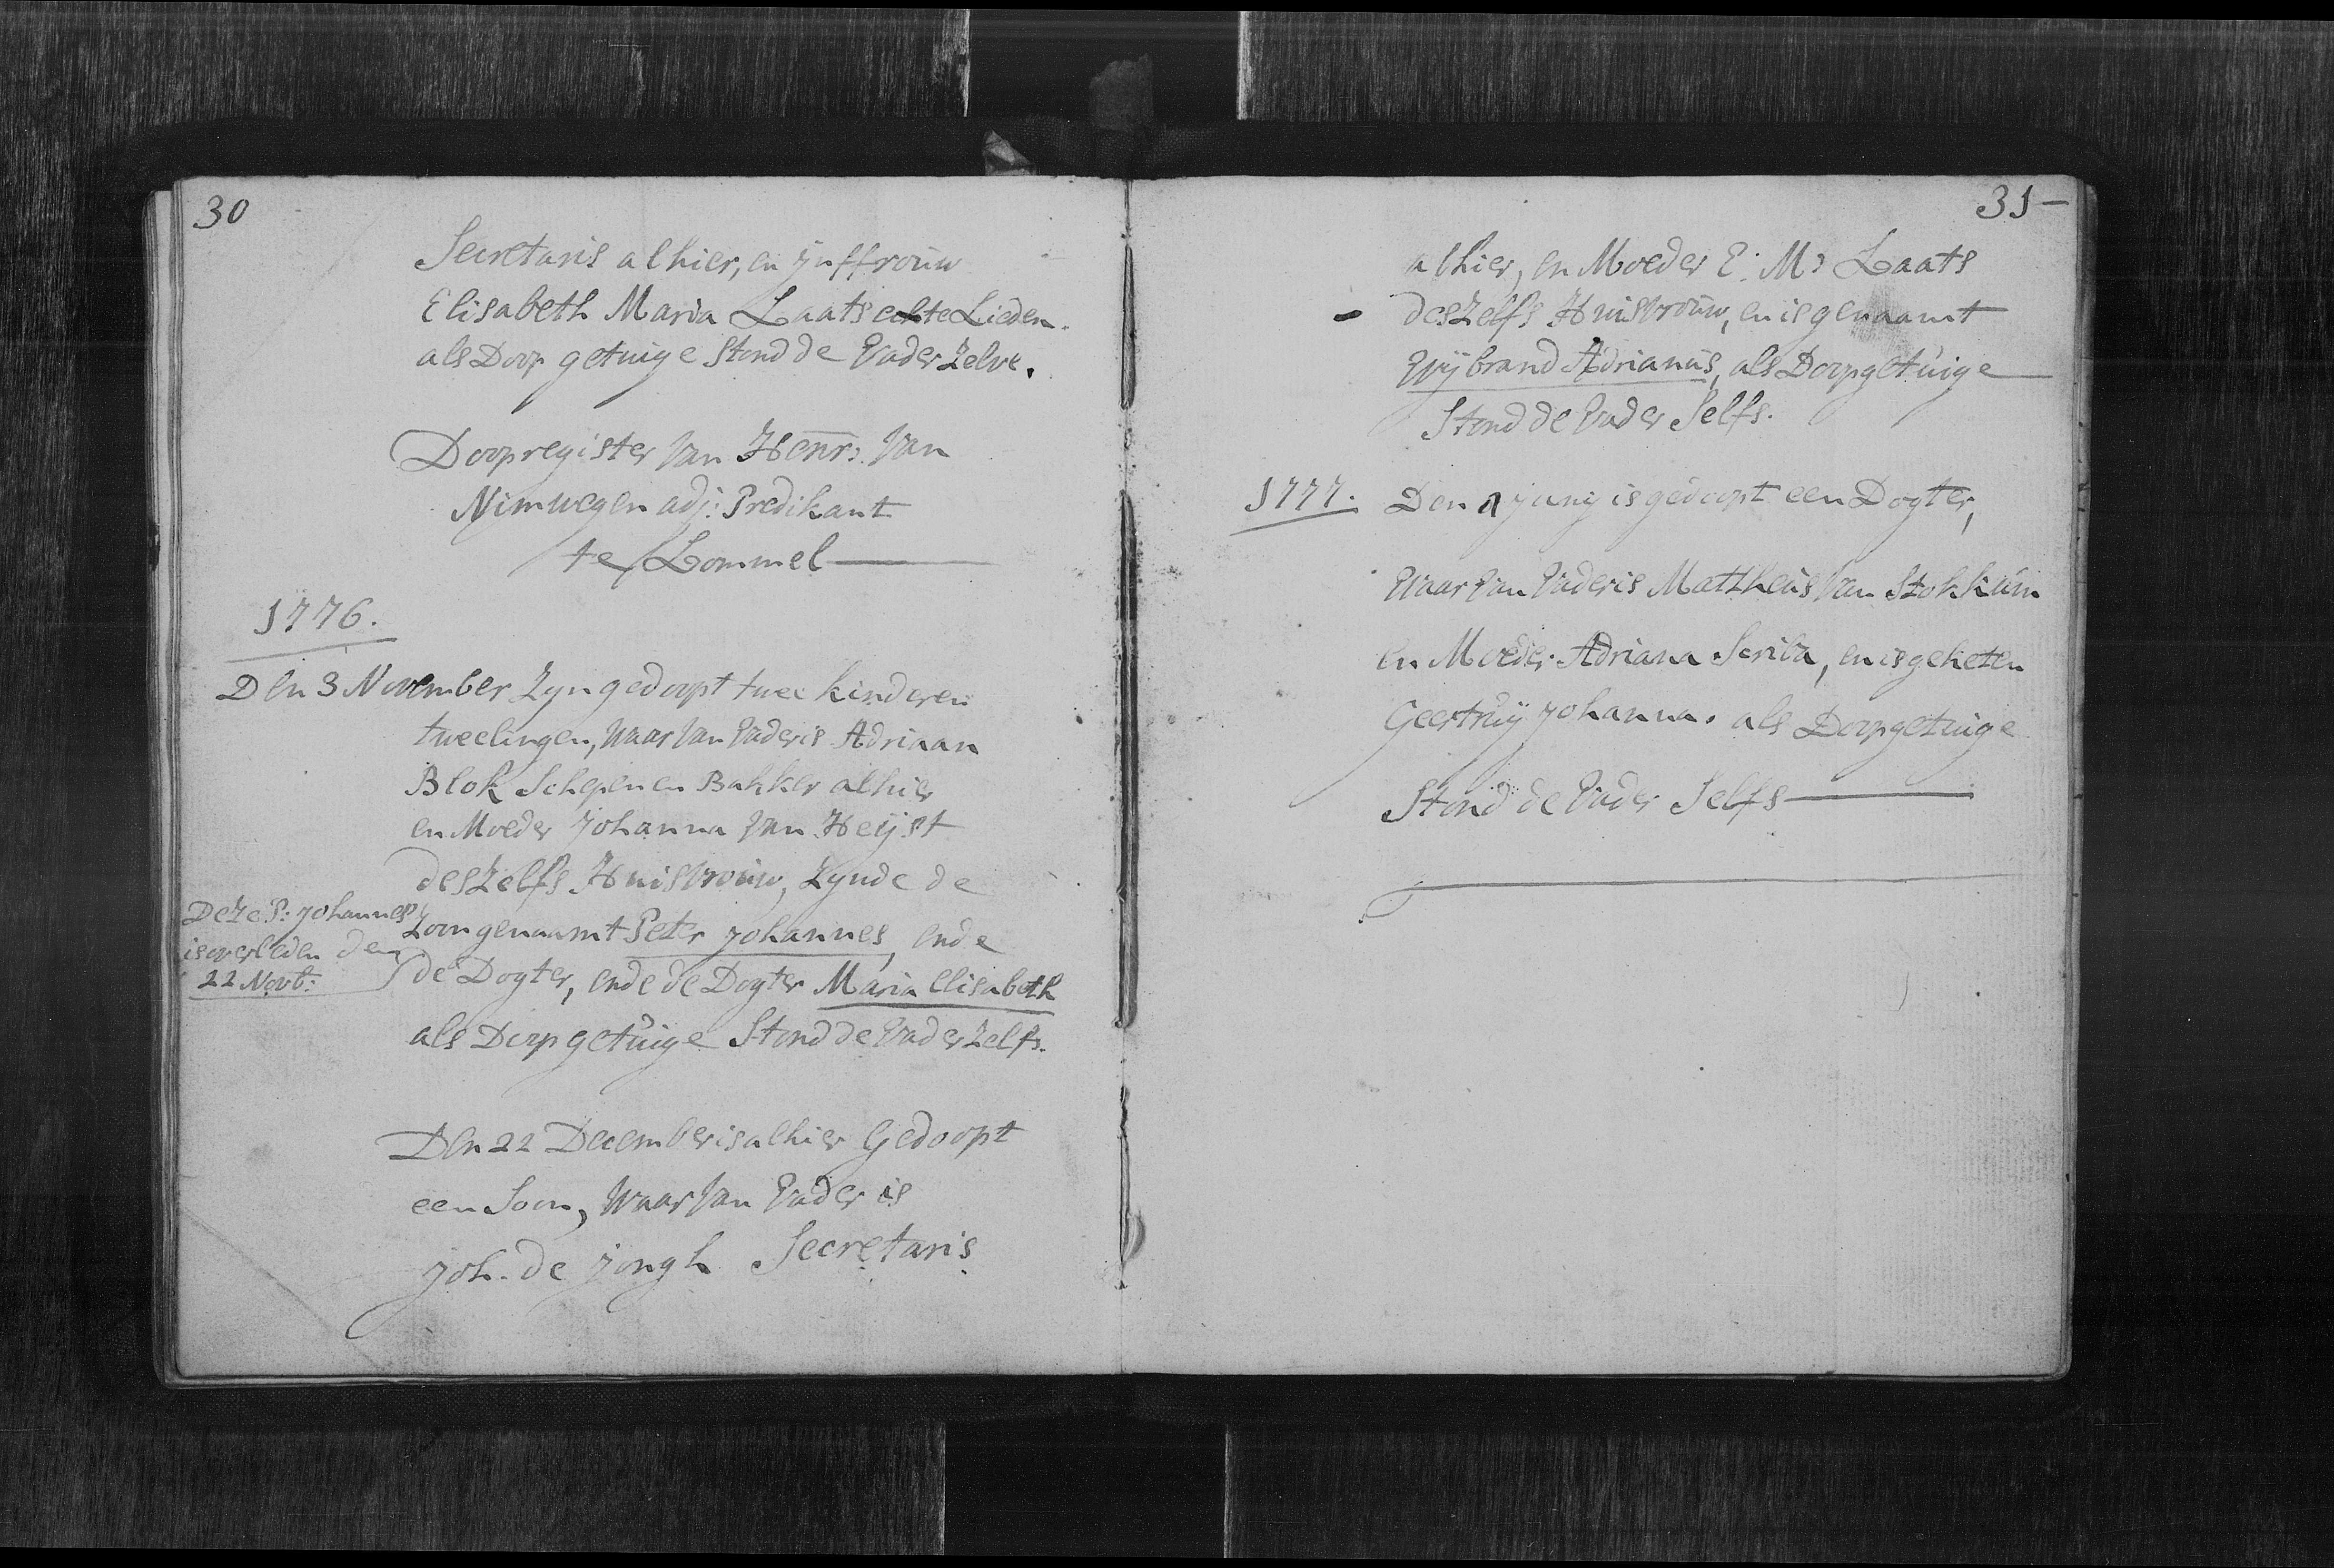 30
Secretaris alhier, en Juffrouw
Elisabeth Maria Laats echte Lieden.
als Doop getuige Stond de Vader Zelve.
Doopregister Van Henr: Van
Nimwegen adj: Predikant
te Lommel
1776.
Den 3 November Zyn gedoopt twee kinderen
tweelingen, Waar Van Vader is Adriaan
Blok Schepen en Bakker alhier
en Moeder Johanna Van Heijst
deszelfs Huisvrouw, Zynde de
Zoon genaamt Peter Johannes, ende
de Dogter, ende de Dogter Maria Elisabeth
als Doopgetuige Stond de Vader Zelfs.
Deze P: Johannes
is overleden den
22 Novb:
Den 22 December is alhier Gedoopt
een Soon, Waar Van Vader is
Joh. de Jongh Secretaris
31
alhier, en Moeder E: M: Laats
deszelfs Huisvrouw, en is genaamt
Wijbrand Adrianus, als Doopgetuige
Stond de Vader Selfs.
1777. Den juny is gedoopt een Dogter,
Waar Van Vader is Mattheus Van Stokkum
en Moeder Adriana Scriba, en is geheten
Geertruij Johanna. als Doopgetuige
Stond de Vader Selfs